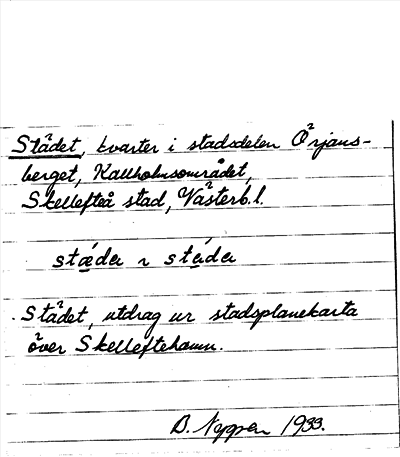 Städet, kvarter i stadsdelen Örjans-
berget, Kallholmsområdet,
Skellefteå stad, Västerb.l.
stǽda ~ stá̤da
Städet, utdrag ur stadsplanekarta
över Skelleftehamn.
B. Nyggen 1933.